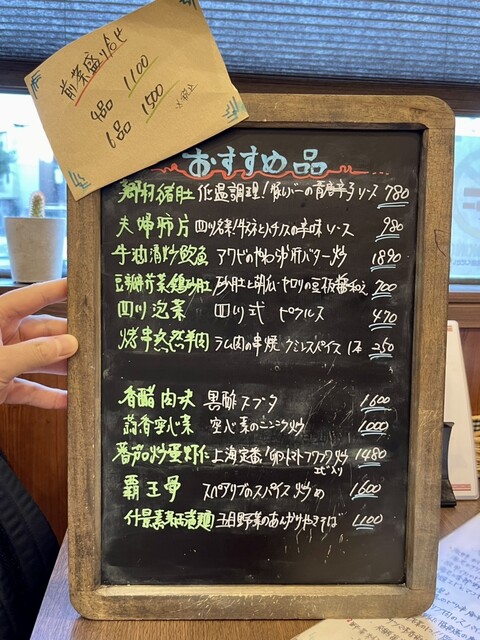 前菜盛り合せ
4品 1100
6品 1500
おすすめ品
低温調理!豚レバーの青唐辛子ソース 780
夫婦肺片 四川名菜!牛スネとハチノスの辛味ソース 980
牛油清炒鮑魚 アワビのやわらか肝バター炒 1890
豆瓣 砂肝と胡瓜・セロリの豆板醤和え 700
四川泡菜 四川式 ピクルス 470
烤串孜然羊肉 ラム肉の串焼 クミンスパイス 1本 250
香醋肉 黒酢スブタ 1600
蒜香空心菜 空心菜のニンニク炒 1000
番茄炒蛋虾仁 上海定番!卵とトマトフワフワ炒 1480
エビ入り
覇王骨 スペアリブのスパイス炒め 1600
什景素 麺 五目野菜のあんかけやきそば 1100